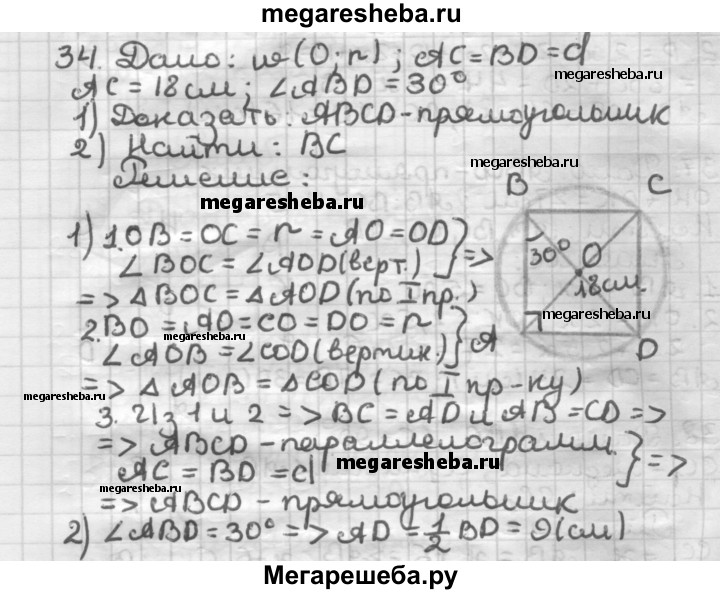 megaresheba.ru
34. Дано: w(O; r); AC = BD = d
AC = 18 см; ∠ABD = 30°
megaresheba.ru
1) Доказать: ABCD - прямоугольник
2) Найти: BC
megaresheba.ru
Решение:
megaresheba.ru
B C
30° O
18см
megaresheba.ru
A
D
1) 1. OB = OC = r = AO = OD
∠BOC = ∠AOD (верт.) } =>
=> △BOC = △AOD (по I пр.)
2. BO = AO = CO = DO = r
megaresheba.ru
∠AOB = ∠COD (вертик.) }
=> △AOB = △COD (по I пр-ку)
megaresheba.ru
3. Из 1 и 2 => BC = AD и AB = CD =>
=> ABCD - параллелограмм.
AC = BD = d } =>
megaresheba.ru
megaresheba.ru
=> ABCD - прямоугольник
2) ∠ABD = 30° => AD = 1/2 BD = 9 (см)
Мегарешеба.ру